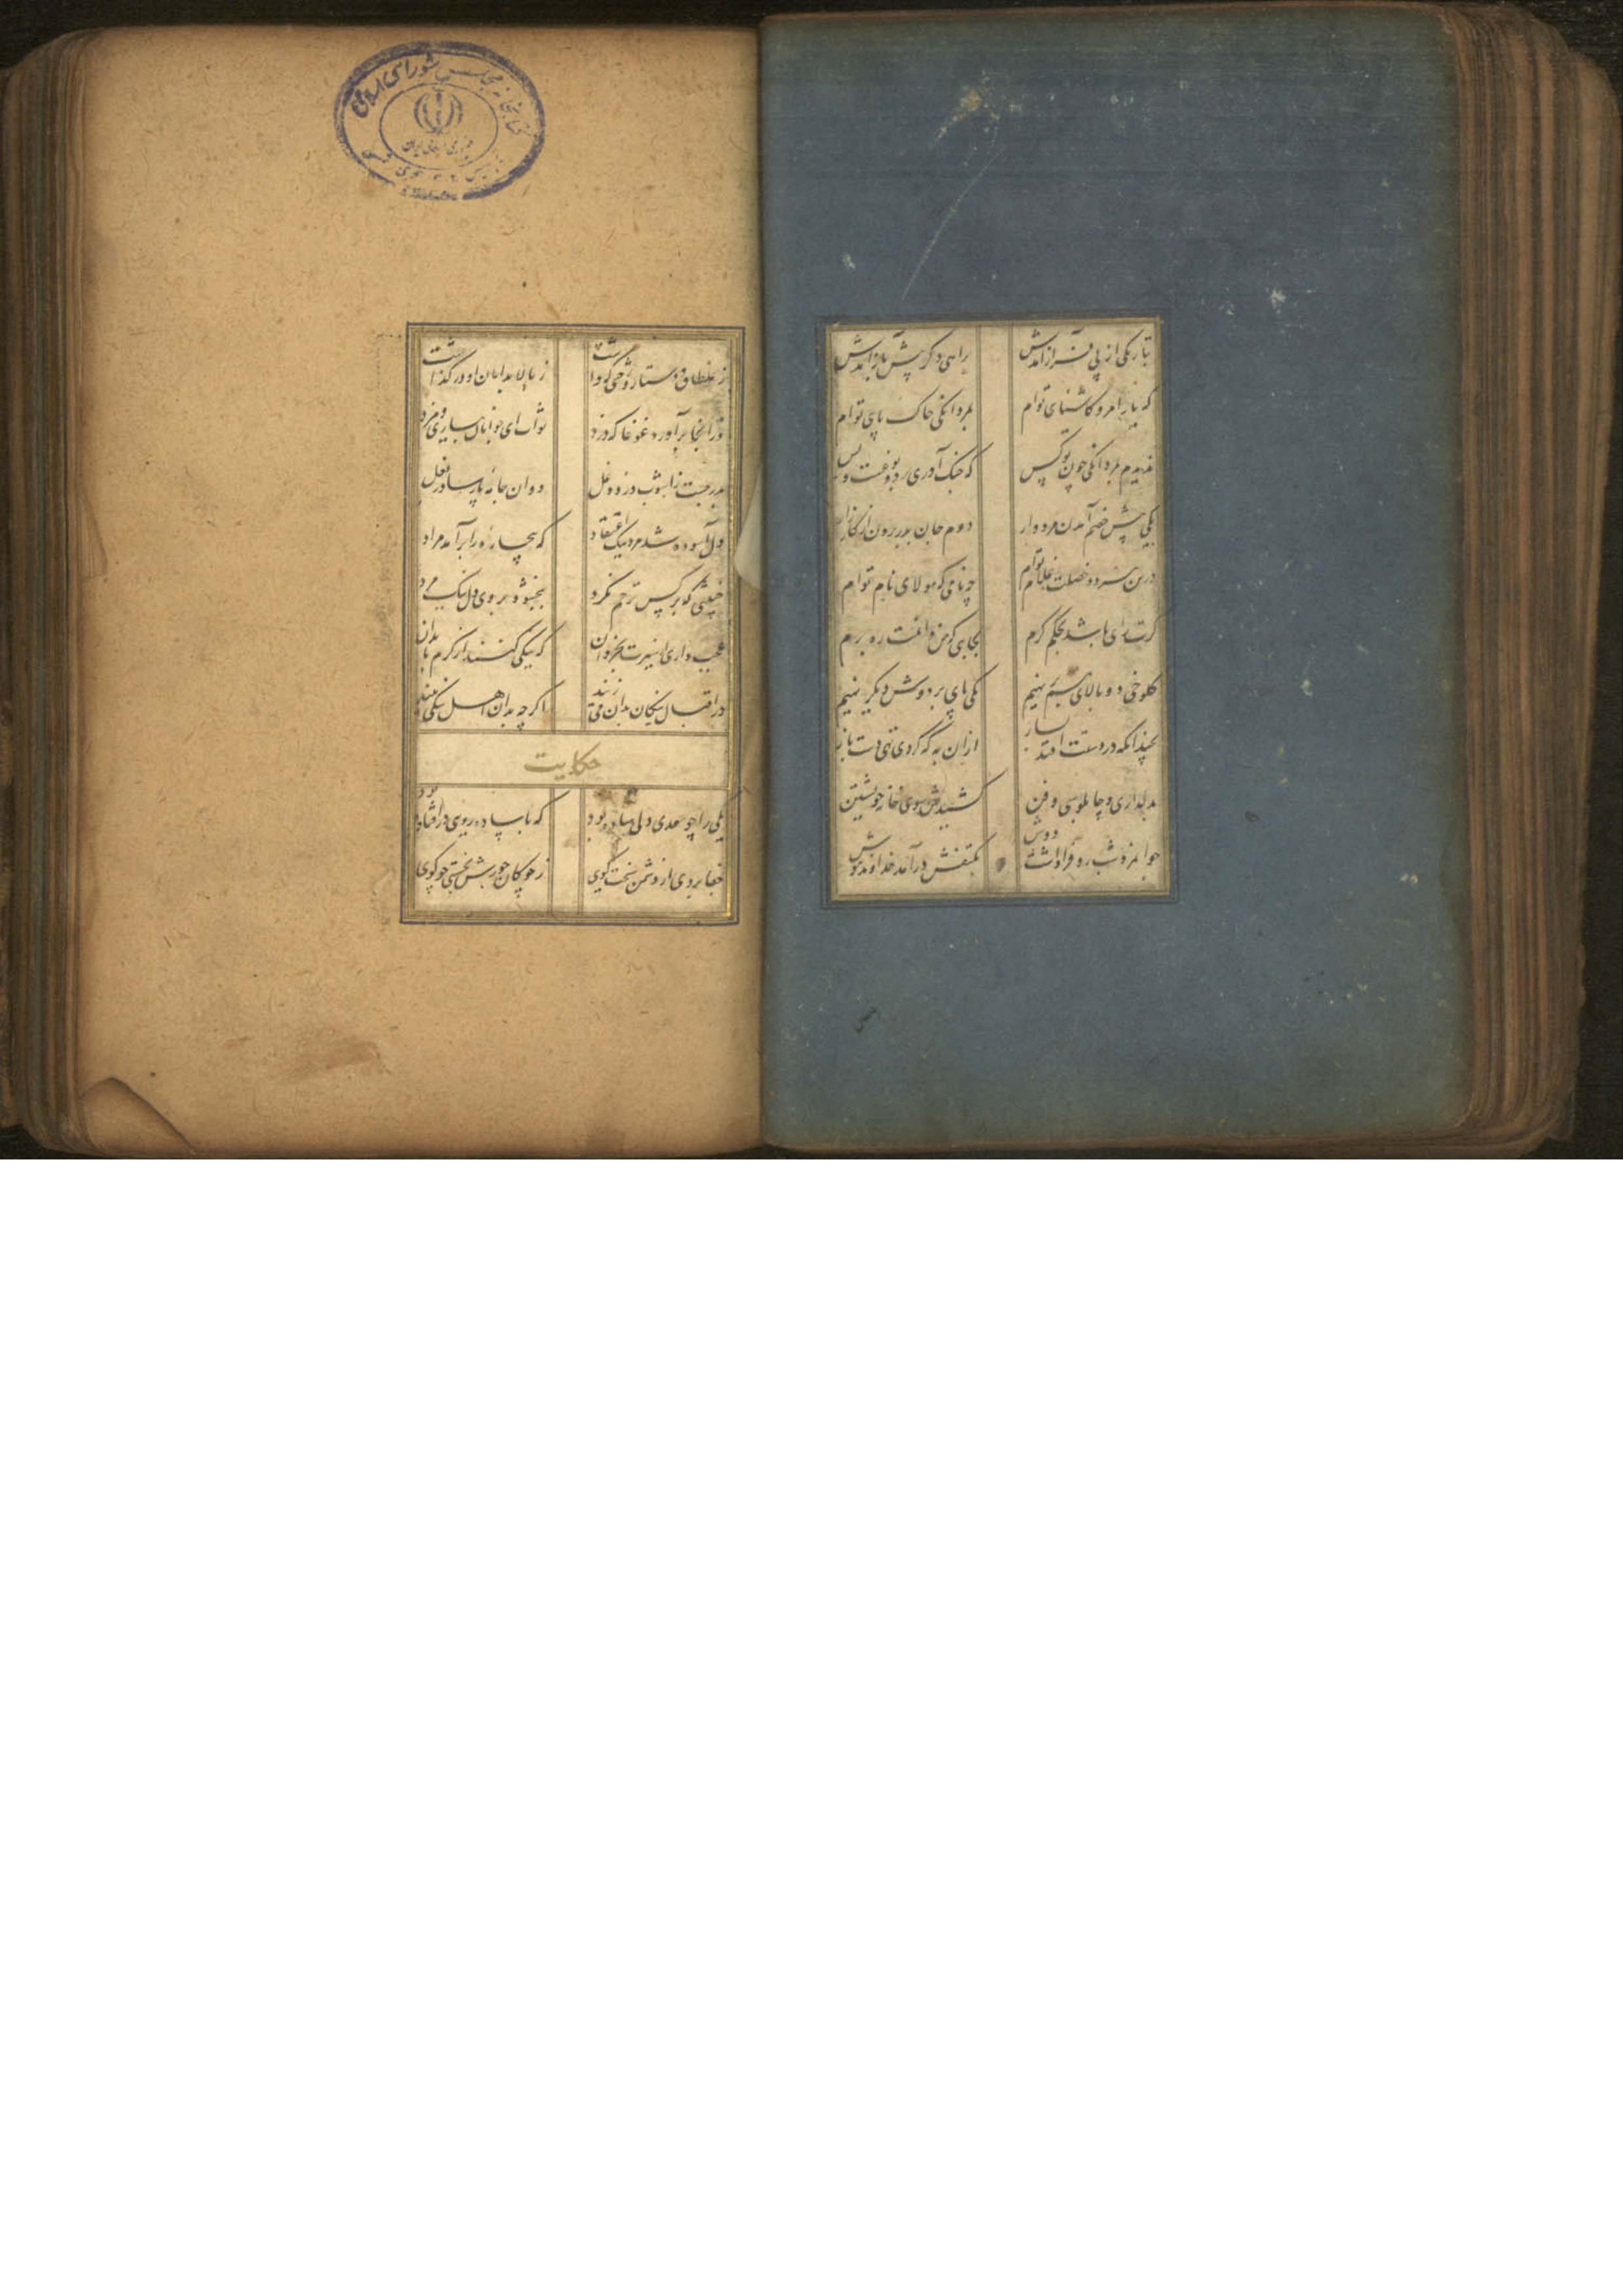 بتاریکی از پی فراز آمدش براهی دکر پیش باز آمدش
که یارا مرو کاشنای توام بمردانکی خاک پای توام
ندیدم بمردانکی چون تو کس که جنک آوری بر دو نوعست و بس
یکی پیش خصم آمدن مردوار دوم جان بدر بردن از کارزار
درین هر دو خصلت غلام توام چه نامی که مولای نام توام
کرت رای باشد بحکم کرم بجایی که من دانمت ره برم
کلوخی دو بالای هم بر نهیم یکی پای بر دوش دیکر نهیم
بچندانکه در دستت افتد بساز ازان به که کردی تهی دست باز
بدلداری و چاپلوسی و فن کشیدش سوی خانه خویشتن
جوانمرد شب رو فرو داشت دوش بکتفش درآمد خداوند هوش
ز غلطاق و دستار و رختی که داشت ز بالا بدامان او در کذاشت
وزانجا برآورد غوغا که دزد ثواب ای جوانان و یاری و مزد
بدر جست از آشوب دزد دغل دوان جامه پارسا در بغل
دل آسوده شد مرد نیک اعتقاد که بیچاره را برآمد مراد
خبیثی که بر کس ترحم نکرد ببخشود بر وی دل نیک مرد
عجب داری از سیرت بخردان که نیکی کنند از کرم با بدان
در اقبال نیکان بدان می زیند اکر چه بدان اهل نیکی نیند
حکایت
یکی را چو سعدی دلی ساده بود که با ساده رویی در افتاده بود
جفا بردی از دشمن سخت کوی ز چوکان جورش چو کوی
کتابخانه مجلس شورای اسلامی
جمهوری اسلامی ایران